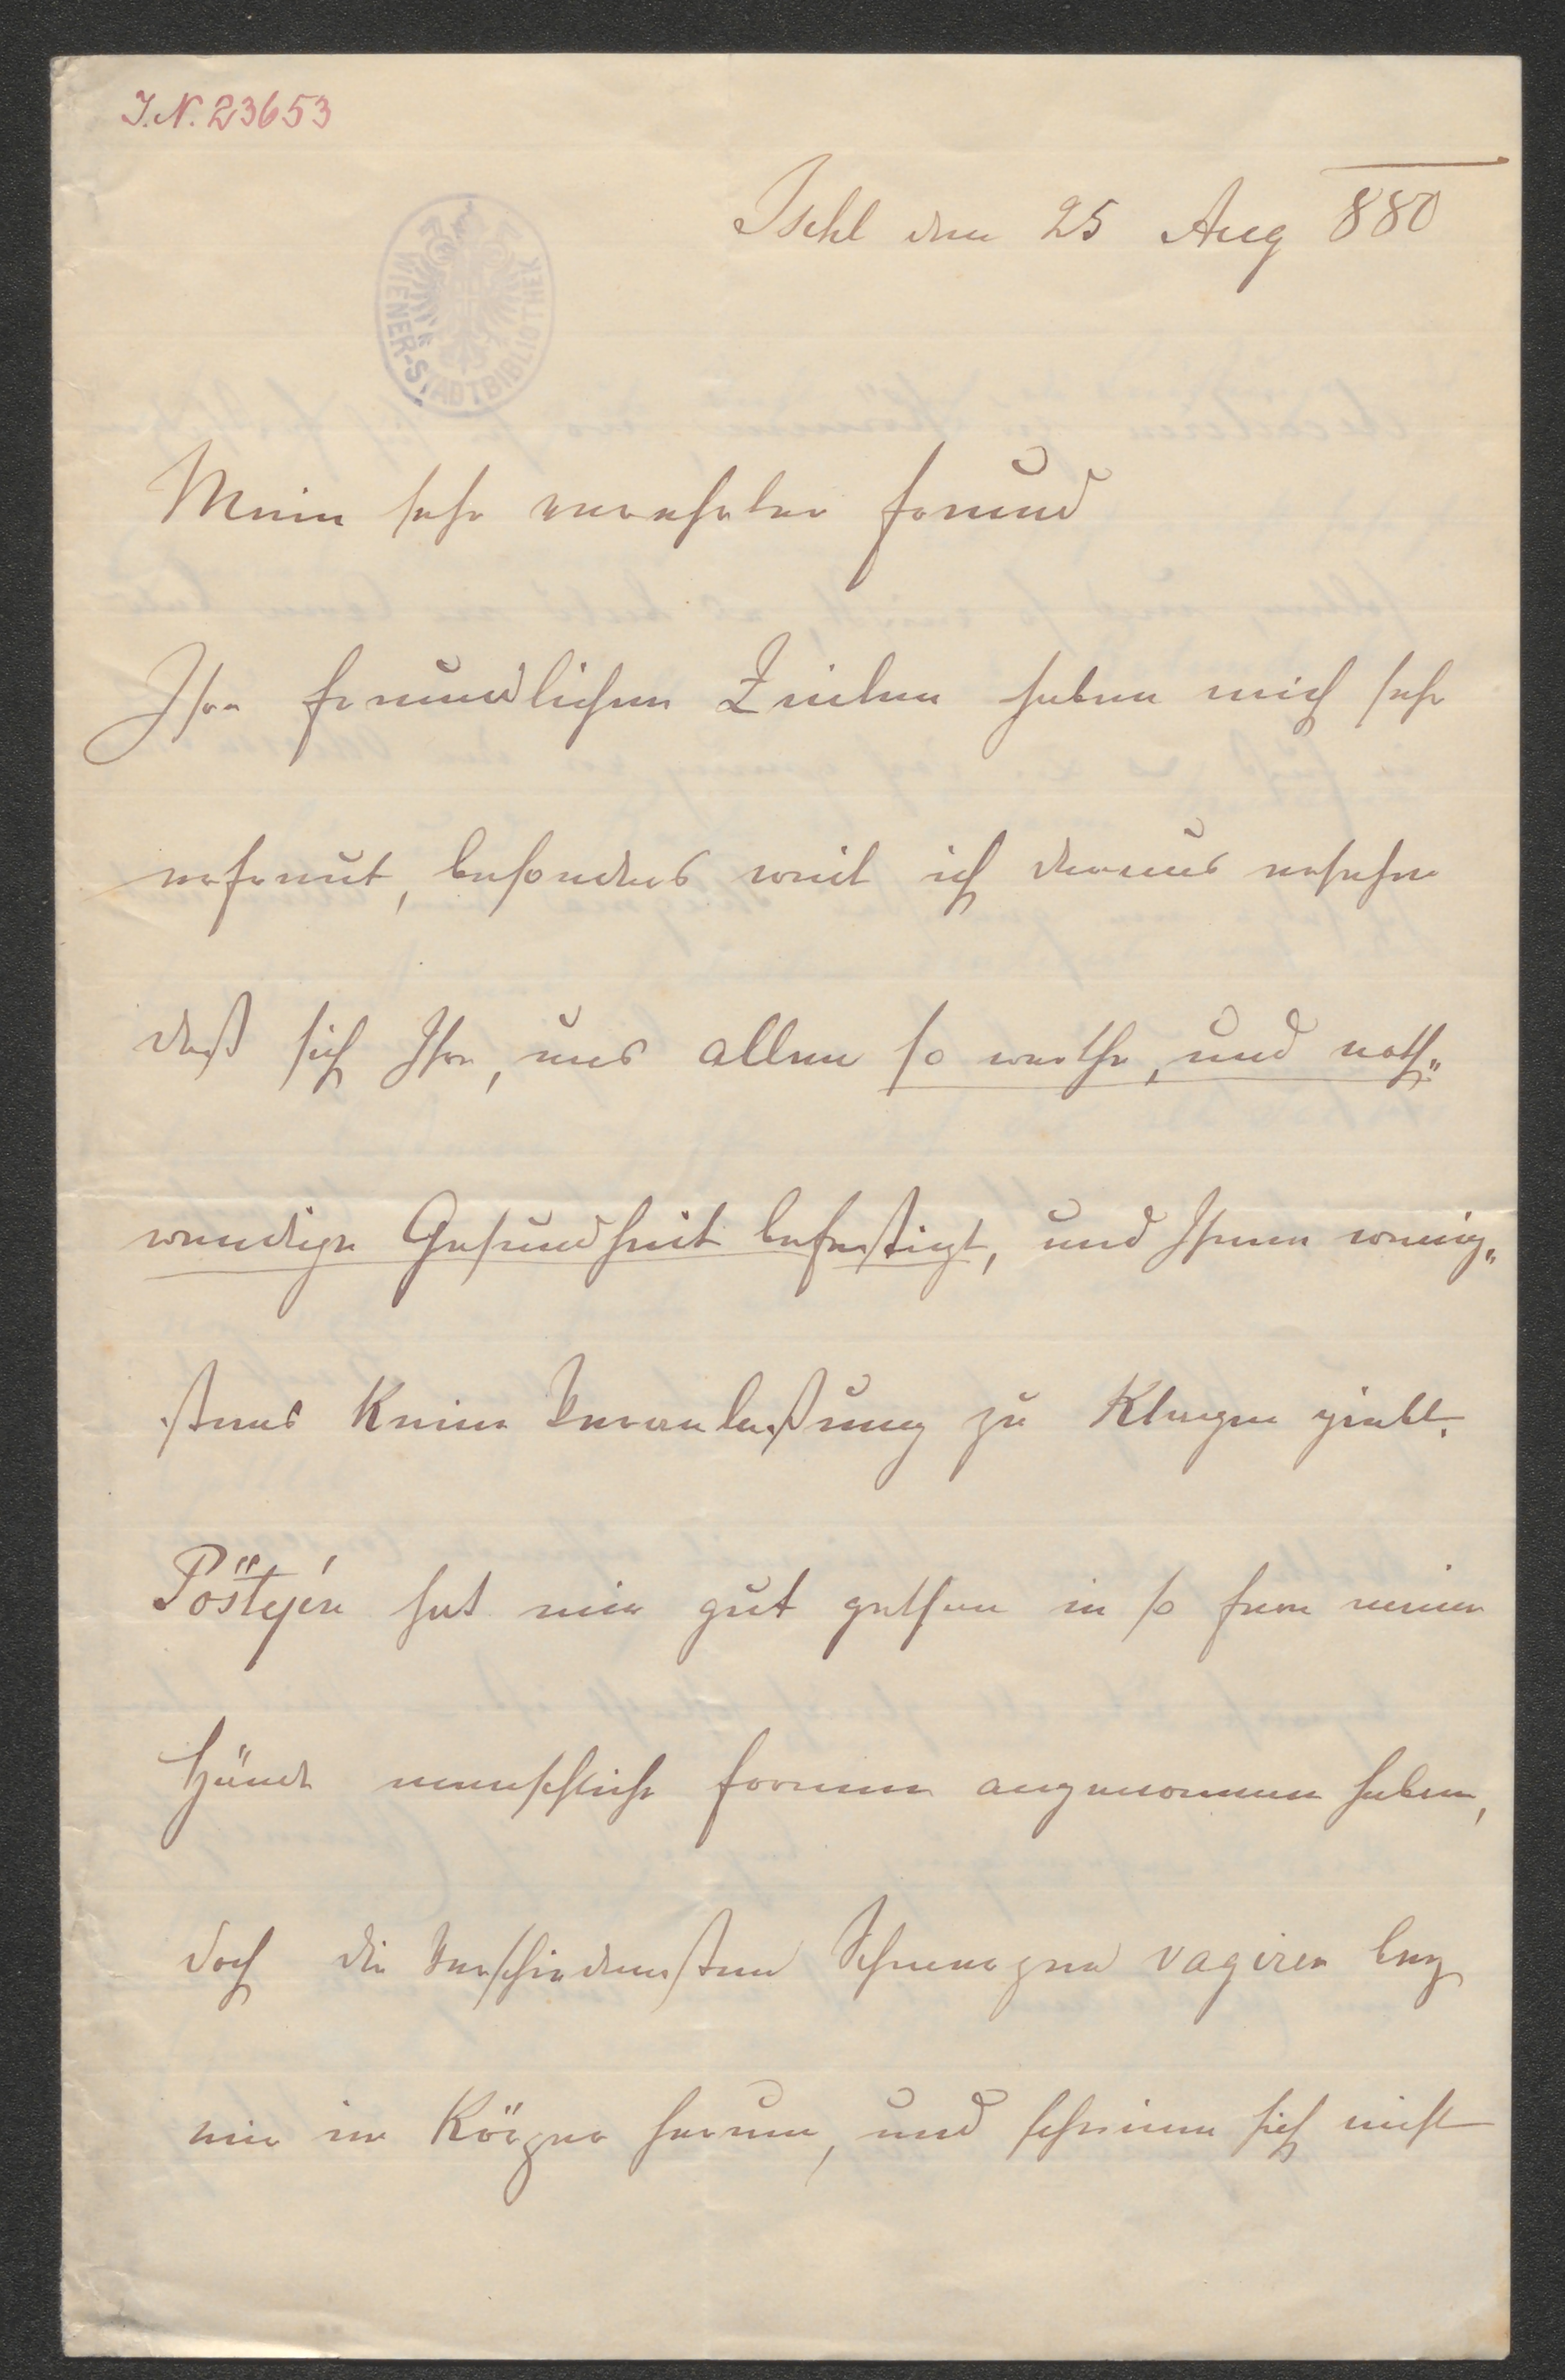 J.N. 23653
Ischl den 25 Aug 880
WIENER-STADTBIBLIOTHEK
Mein sehr verehrter Freund
Ihre freundlichen Zeilen haben mich sehr
erfreut, besonders weil ich daraus ersehe
daß sich Ihre, uns allen so werthe, und noth„
wendige Gesundheit befestigt, und Ihnen wenig„
stens keine Veranlaßung zu Klagen giebt.
Pöstyén hat mir gut gethan in so fern meine
Hände menschliche Formen angenommen haben,
doch die verschiedensten Schmerzen vagiren bey
mir im Körper herum, und scheinen sich nicht